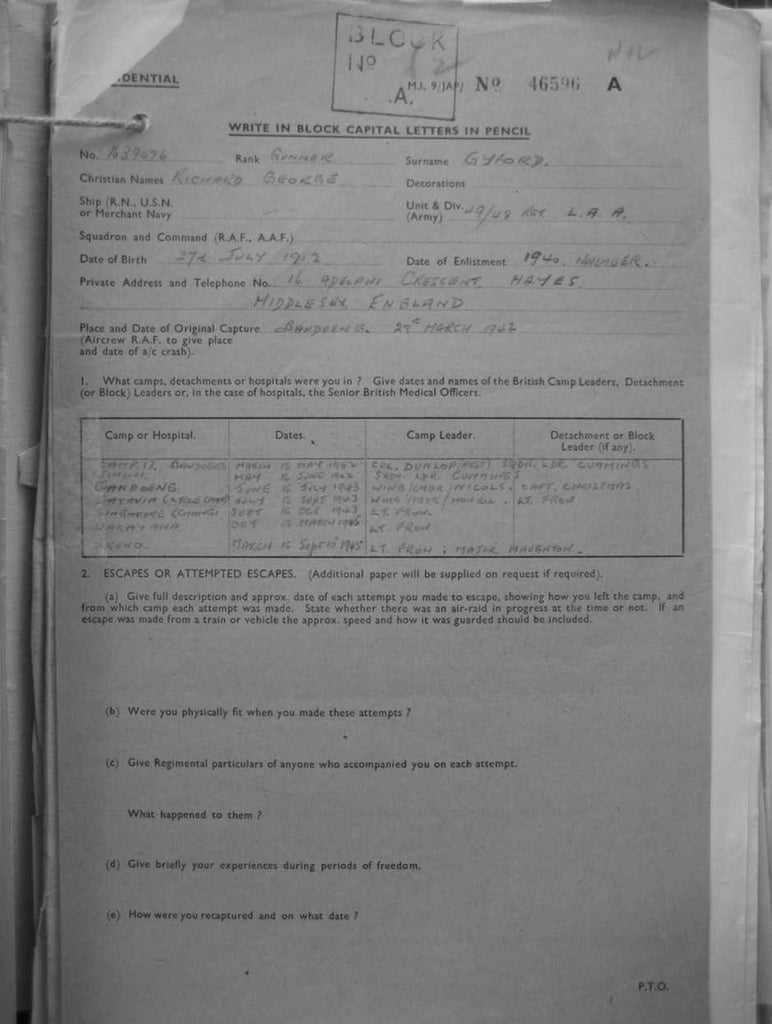 BLOCK
No 12
.A.
NIL
DENTIAL
M.I. 9/JAP/ No 46596 A
WRITE IN BLOCK CAPITAL LETTERS IN PENCIL
No. Rank GUNNER Surname GYFORD.
Christian Names RICHARD GEORGE Decorations
Ship (R.N., U.S.N. or Merchant Navy Unit & Div. (Army) 49/48 L. A. A.
Squadron and Command (R.A.F., A.A.F.)
Date of Birth 27th JULY 1912 Date of Enlistment 1940
Private Address and Telephone No. 16 ADELPHI CRESCENT HAYES.
MIDDLESEX ENGLAND
Place and Date of Original Capture BANDOENG. MARCH 1942
(Aircrew R.A.F. to give place
and date of a/c crash).
1. What camps, detachments or hospitals were you in ? Give dates and names of the British Camp Leaders, Detachment
(or Block) Leaders or, in the case of hospitals, the Senior British Medical Officers.
Camp or Hospital. Dates. Camp Leader. Detachment or Block
Leader (if any).
CAMP 12, BANDOENG MARCH to MAY 1942 COL. DUNLOP (AUST) SQDN. LDR. CUMMINGS
MAY to JUNE 1942 SQDN. LDR. CUMMINGS
BANDOENG JUNE to JULY 1943 WING/CMDR/NICOLS. CAPT. CHRISTMAS
BATAVIA JULY to SEPT 1943 WING/CMDR/ LT. PROW
SINGAPORE (CHANGI) SEPT to OCT 1943 LT. PROW.
OCT to MARCH 1945 LT. PROW
MARCH to Sept 1945 LT. PROW. MAJOR NAUGHTON.
2. ESCAPES OR ATTEMPTED ESCAPES. (Additional paper will be supplied on request if required).
(a) Give full description and approx. date of each attempt you made to escape, showing how you left the camp, and
from which camp each attempt was made. State whether there was an air-raid in progress at the time or not. If an
escape was made from a train or vehicle the approx. speed and how it was guarded should be included.
(b) Were you physically fit when you made these attempts ?
(c) Give Regimental particulars of anyone who accompanied you on each attempt.
What happened to them ?
(d) Give briefly your experiences during periods of freedom.
(e) How were you recaptured and on what date ?
P.T.O.